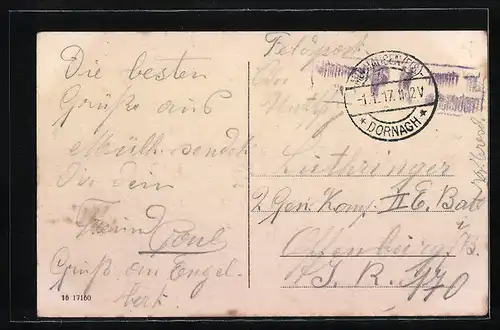 Die besten
Grüße aus
Mülh. sendet
Dir dein
Freund Paul
Gruß an Engel-
bert.
16 17160
Feldpost
MÜLHAUSEN (ELS.)
-1.1.17. 11-12V
* DORNACH *
Luthringer
2 Gen. Komp. II E. Bat
Offenburg i/B.
I. R. 170